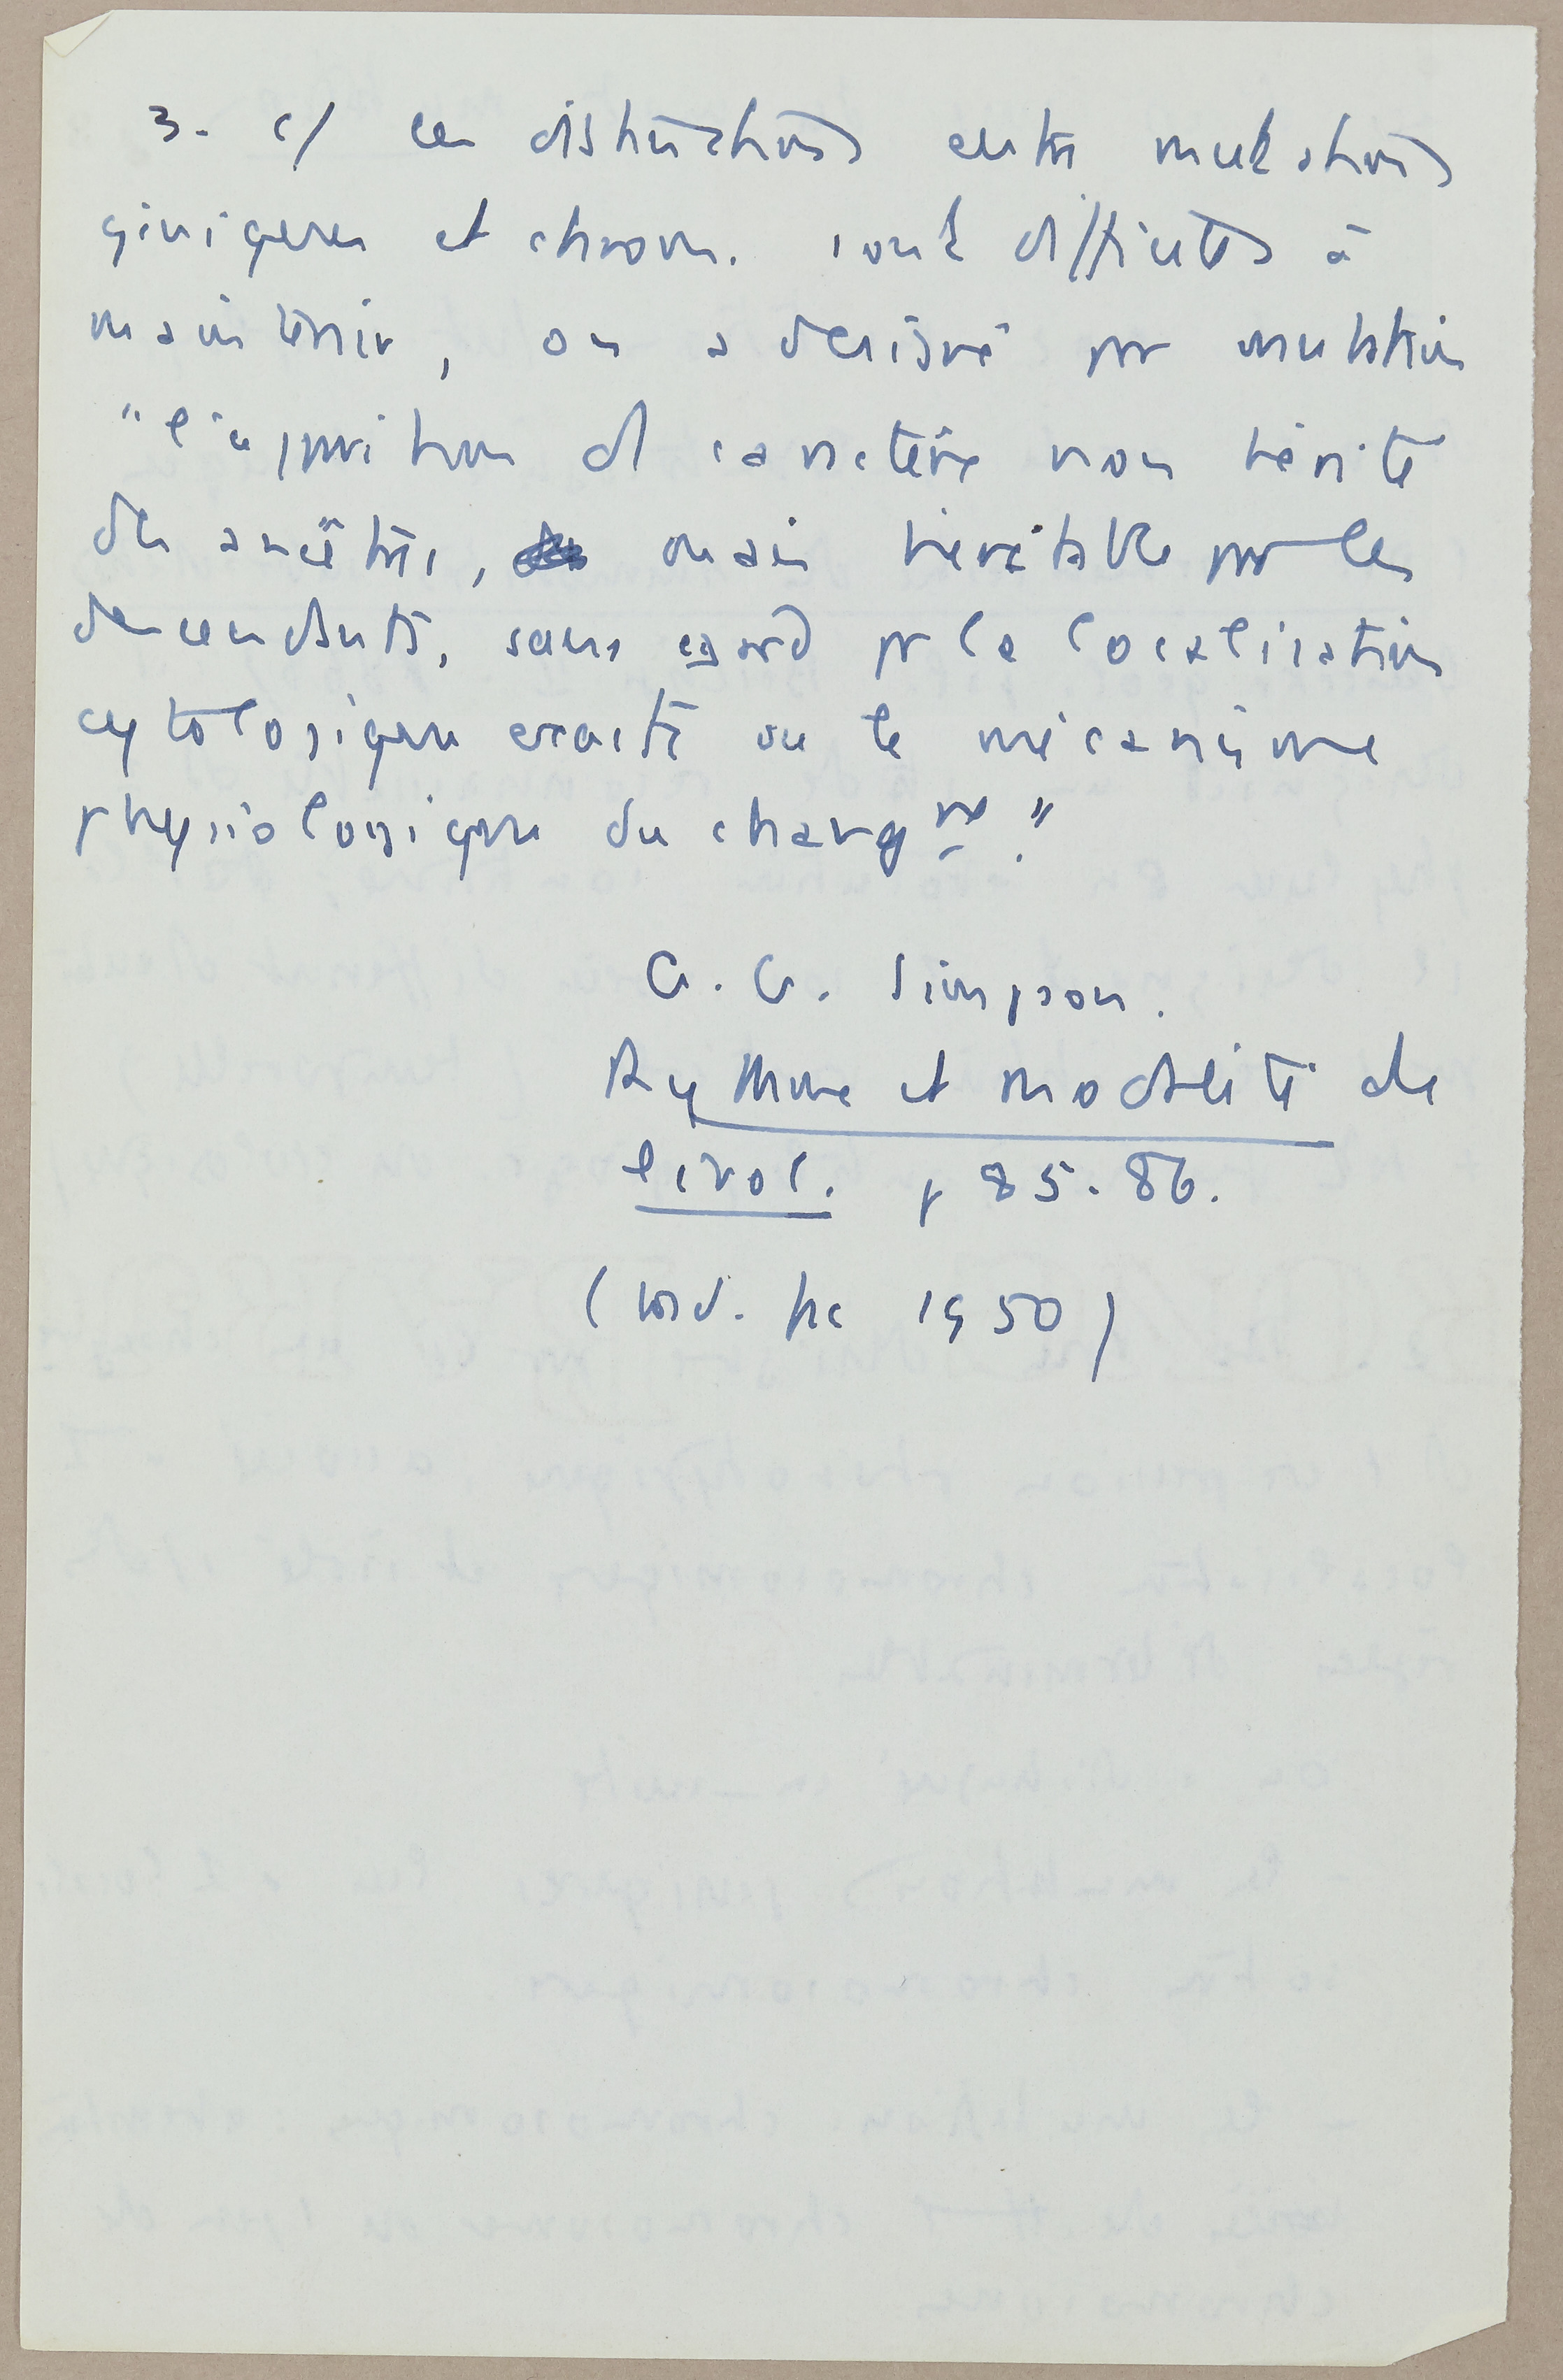 3. c/ ces distinctions entre mutations
géniques et chrom. sont difficiles à
maintenir, on a désigné par mutation
"l'apparition de caractère non hérité
des ancêtres, mais héritable par les
descendants, sans égard pr la localisation
cytologique exacte ou le mécanisme
physiologique du changmt."
G. G. Simpson.
Rythme et modalité de
l'évol. p 85-86.
(trad. fse 1950)